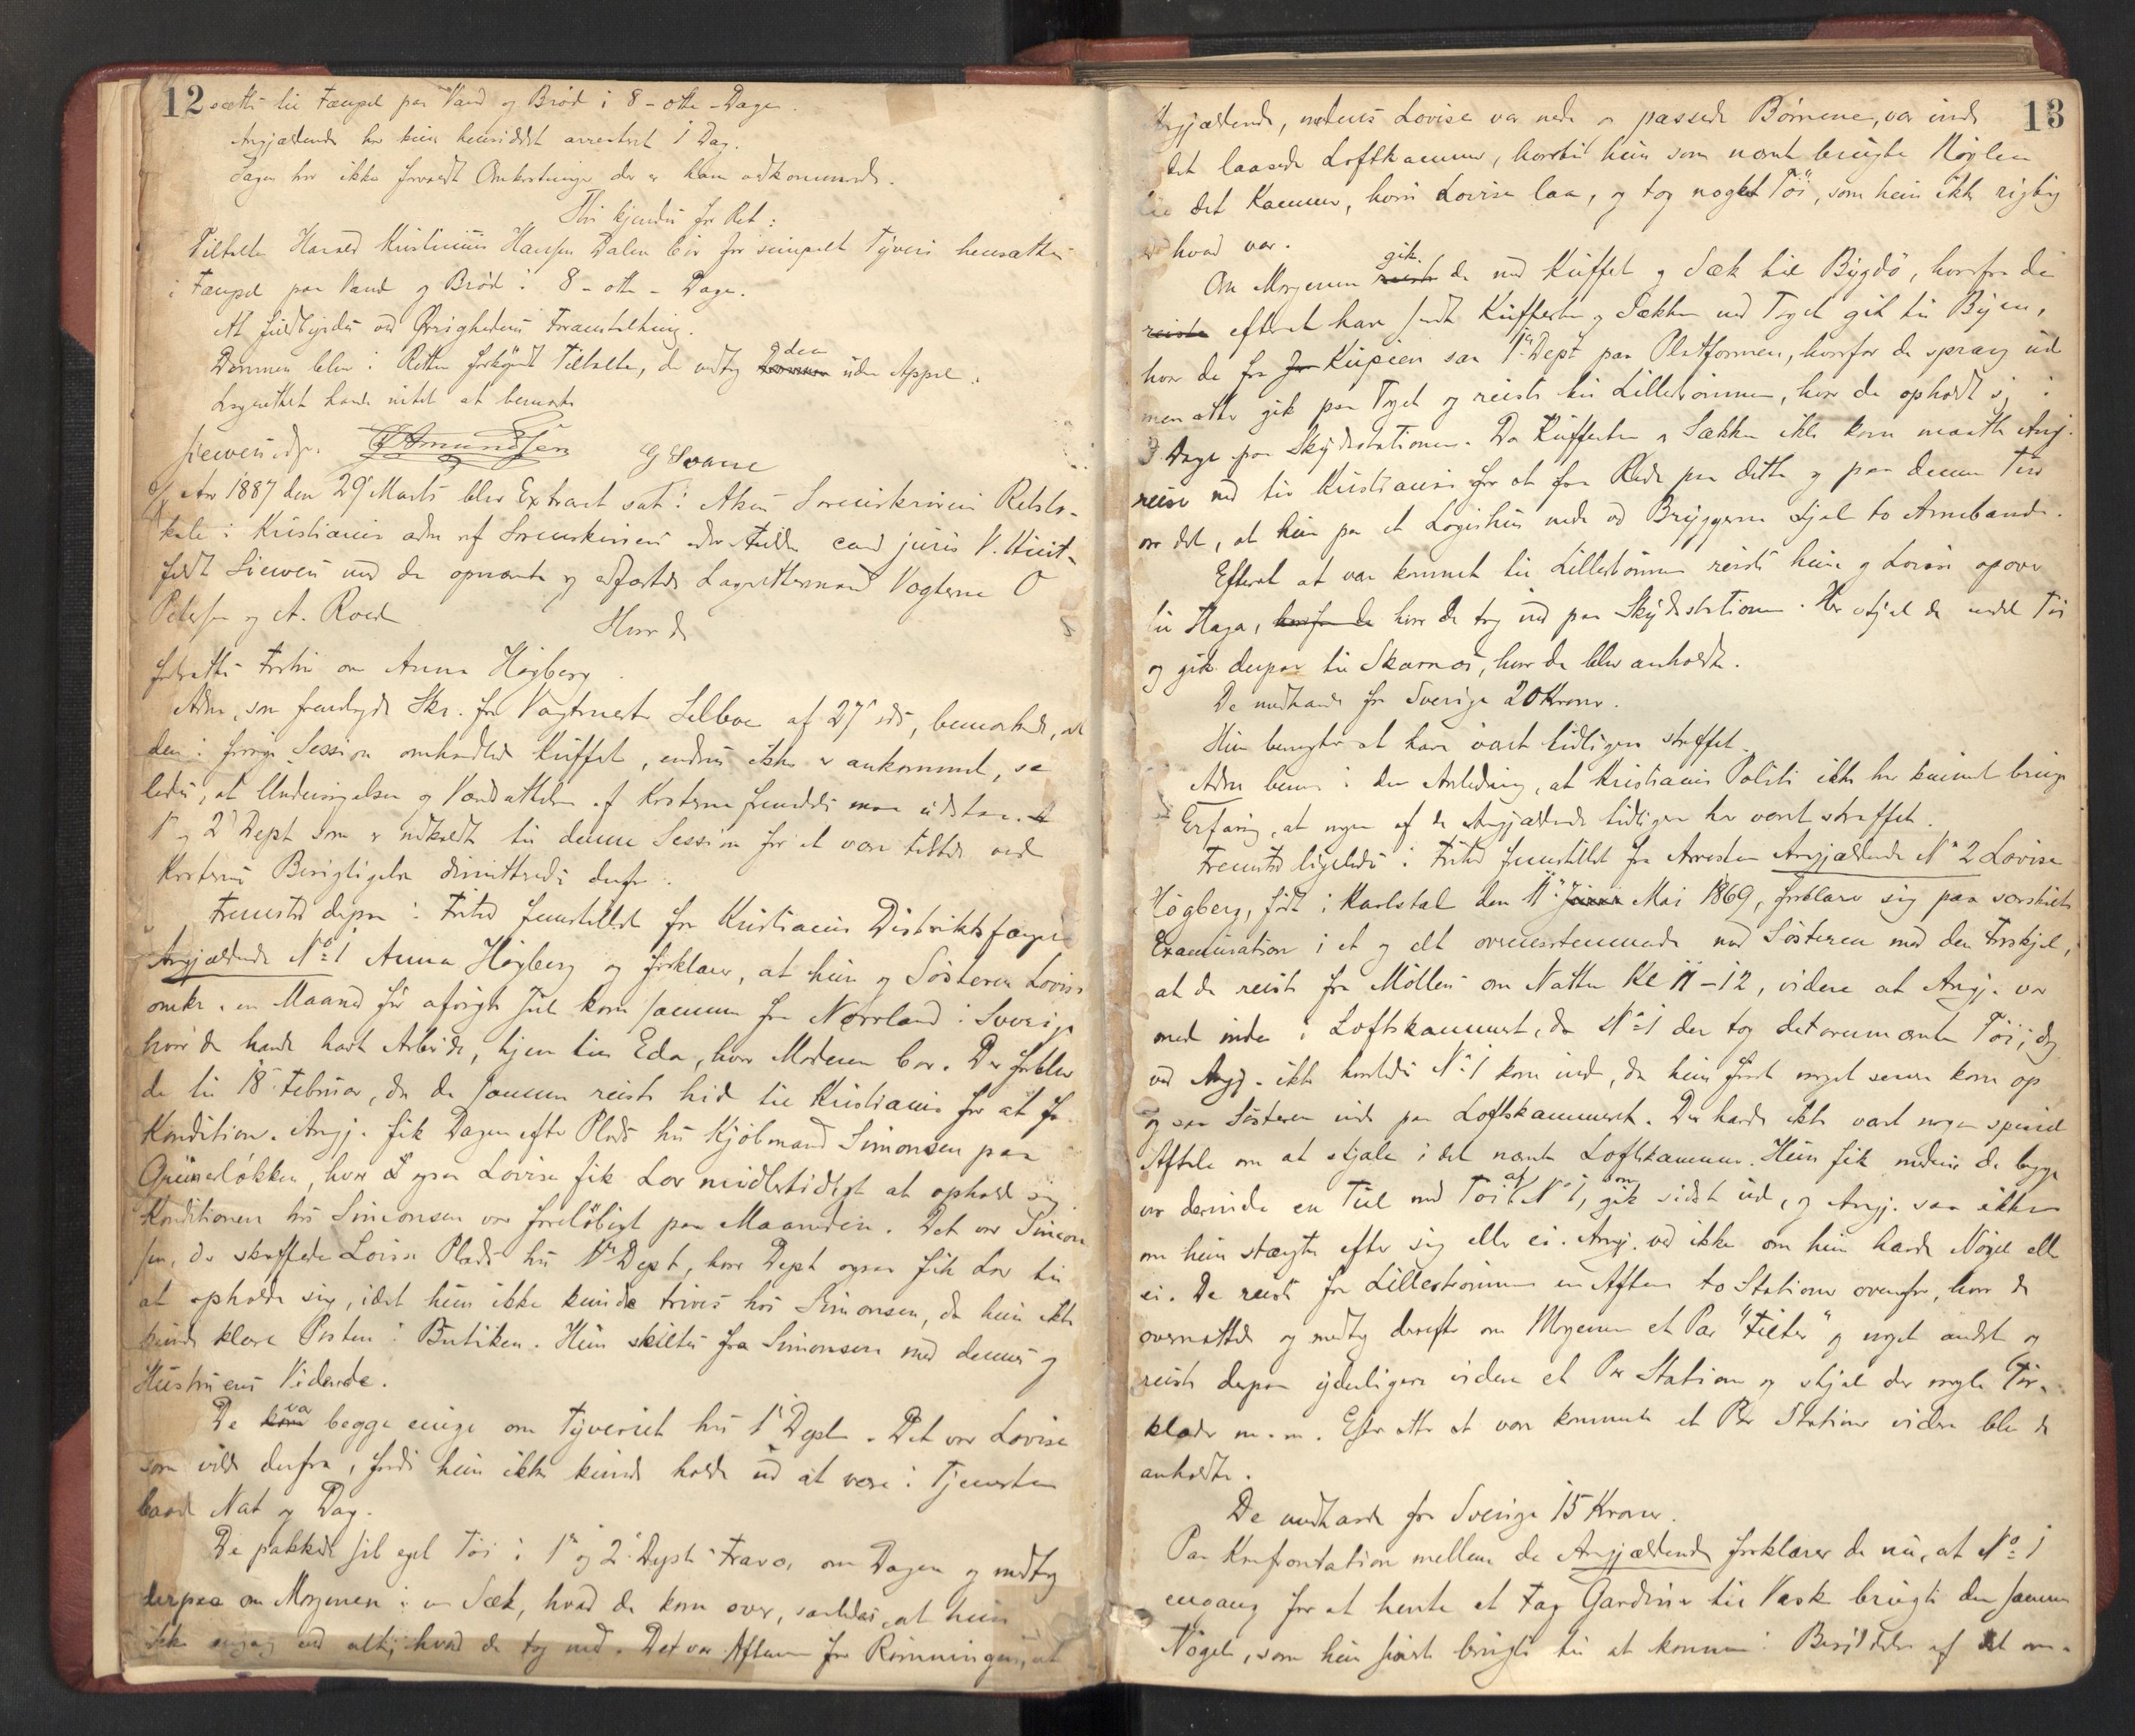 12 sættes til Fængsel paa Vand og Brød i 8 - otte - Dage.
Angjældende har kun hensiddet arresteret 1 Dag.
Sagen har ikke forvoldt Omkostninger der er ham vedkommende.
Thi kjendes for Ret:
Tiltalte Harald Kristinius Hansen Dalen bør for simpelt Tyveri hensættes
i Fængsel paa Vand og Brød i 8 - otte - Dage.
At fuldbyrdes ved Øvrighedens Foranstaltning.
Dommen blev i Retten forkyndt Tiltalte, der vedtog den uden Appel.
Lagrettet havde intet at bemærke
Siewers
Amundsen
G Svane
Aar 1887 den 29 Marts blev Extraret sat i Akers Sorenskriveri Retslo-
kale i Kristiania adm af Sorenskriverens edsv Fuldm cand juris V. Huit-
feldt Siewers med de opnævnte og edfæstede Lagrettesmænd Vogterne O
Petersen og A. Roed
Hvor da
fortsattes Forhør om Anna Högberg.
Adm, som fremlagde Skr. fra Vagtmester Selboe af 27 ds, bemærkede, at
den i forrige Session omhandlede Kuffert, endnu ikke er ankommet, saa-
ledes, at Undersøgelsen og Værdsættelsen af Kosterne fremdeles maa udstaa.
1 og 2 Dept som er indkaldt til denne Session for at være tilstede ved
Kosternes Besigtigelse dimitteredes derfor.
Fremstod derpaa i Frihed fremstillet fra Kristiania Distriktsfængsel
Angjældende No 1 Anna Högberg og forklarer, at hun og Søsteren Lovise
omkr. en Maaned før afvigte Jul kom sammen fra Norrland i Sverige
hvor de havde havt Arbeide, hjem til Eda, hvor Moderen bor. Der forblev
de til 18 Februar, da de sammen reiste hid til Kristiania for at faa
Kondition. Angj. fik Dagen efter Plads hos Kjøbmand Simonsen paa
Grünerløkken, hvor ogsaa Lovise fik Lov midlertidigt at opholde sig
Konditionen hos Simonsen var foreløbigt paa Maaneden. Det var Simon-
sen, der skaffede Lovise Plads hos 1 Dept, hvor Dept ogsaa fik Lov til
at opholde sig, idet hun ikke kunde trives hos Simonsen, da hun ikke
kunde klare Posten i Butiken. Hun skiltes fra Simonsen med dennes og
Hustruens Vidende.
De var begge enige om Tyveriet hos 1 Dept. Det var Lovise
som vilde derfra, fordi hun ikke kunde holde ud at være i Tjenesten
baade Nat og Dag.
De pakkede sit eget Tøi i 1 og 2 Depts Fravær om Dagen og medtog
derpaa om Morgenen i en Sæk, hvad de kom over, saaledes, at hun
ikke engang ved alt, hvad de tog med. Det var Aftenen før Rømningen, at
13
Angjældende, medens Lovise var nede og passede Børnene, var inde
det laasede Loftkammer, hvortil hun som nævnt brugte Nøglen
til det Kammer, hvori Lovise laa, og tog noget Tøi, som hun ikke rigtig
ved hvad var.
Om Morgenen gik de med Kuffert og Sæk til Bygdø, hvorfra de
efterat have sendt Kufferten og Sækken med Toget gik til Byen,
hvor de fra Kupeen saa 1 Dept paa Platformen, hvorfor de sprang ud
men atter gik paa Toget og reiste til Lillestrømmen, hvor de opholdt sig i
3 Dage paa Skydsstationen. Da Kufferten og Sækken ikke kom maatte Angj.
reise ned til Kristiania for at faa Rede paa dette og paa denne Tur
var det, at hun paa et Logishus nede ved Bryggerne stjal to Armbaand.
Efterat at være kommet til Lillestrømmen reiste hun og Lovise opover
til Haga, hvor de tog ind paa Skydsstationen. Her stjal de endel Tøi
og gik derpaa til Skarnæs, hvor de blev anholdt.
De medhavde fra Sverige 20 Kroner.
Hun benægter at have været tidligere straffet.
Adm bem. i den Anledning, at Kristiania Politi ikke har kunnet bringe
Erfaring, at nogen af de Angjældende tidligere har været straffet.
Fremstod ligeledes i Frihed fremstillet fra Arresten Angjældende No 2 Lovise
Högberg, født i Karlstad den 11 Mai 1869, forklarer sig paa særskilt
Examination i et og alt overensstemmende med Søsteren med den Forskjel,
at de reiste fra Møllers om Natten Kl 11-12, videre at Angj. var
med inde i Loftskammeret, da No 1 der tog det ovennævnte Tøi; dog
ved Angj. ikke hvorledes No 1 kom ind, da hun først noget senere kom op
og saa Søsteren inde paa Loftskammeret. Der havde ikke været nogen speciel
Aftale om at stjæle i det nævnte Loftskammer. Hun fik medens de begge
var derinde en Del med Tøi af No 1, som gik sidst ud, og Angj. saa ikke
om hun stængte efter sig eller ei. Angj. ved ikke om hun havde Nøgel eller
ei. De reiste fra Lillestrømmen en Aften to Stationer ovenfor, hvor de
overnattede og medtog derefter om Morgenen et Par "Filter" og noget andet og
reiste derpaa yderligere videre et Par Stationer og stjal der nogle Tør-
klæder m. m. Efter atter at være kommet et Par Stationer videre blev de
anholdte.
De medhavde fra Sverige 15 Kroner.
Paa Konfrontation mellem de Angjældende forklarer de nu, at No 1
engang for at hente et Fag Gardiner til Vask brugte den samme
Nøgel, som hun først brugte til at komme i Besiddelse af det om-